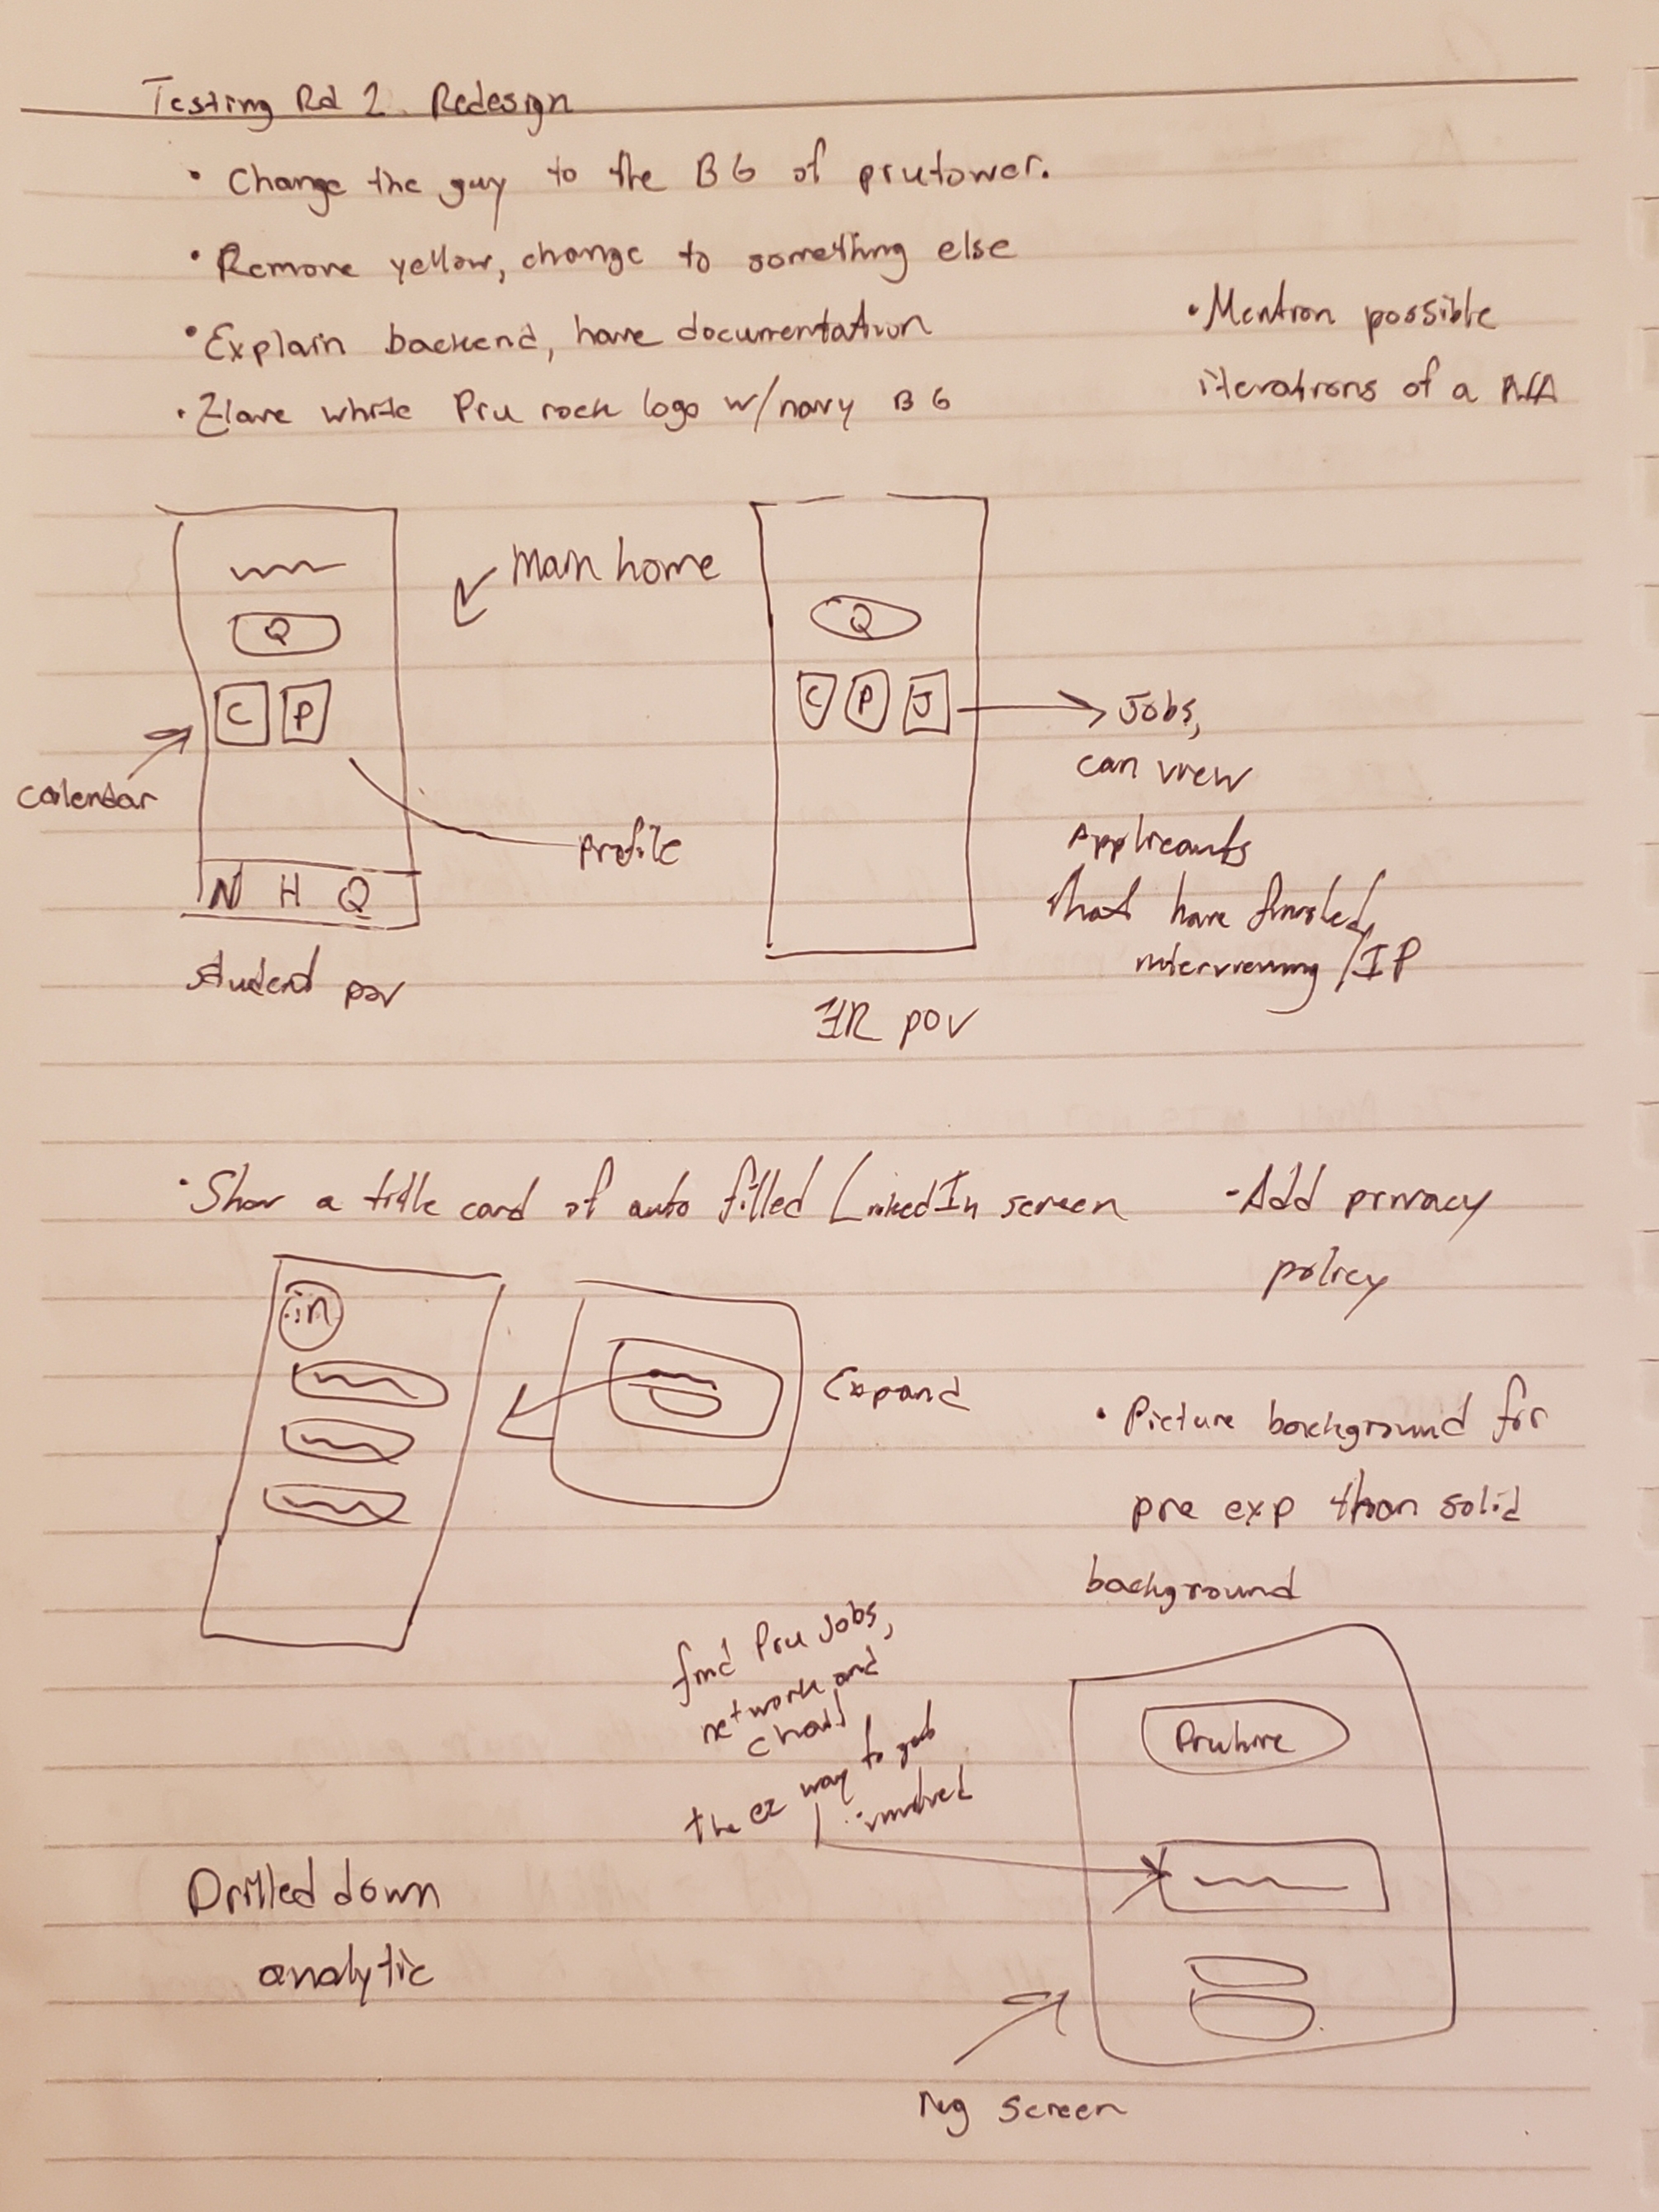 Testing Rd 2 Redesign
• Change the guy to the BG of prutower.
• Remove yellow, change to something else
• Explain backend, have documentation
• Have white Pru rock logo w/navy BG
• Mention possible
iterations of a
main home
Q
C P
calendar
profile
N H Q
student pov
Q
C P J
Jobs,
can view
Applicants
that have finished
interviewing /IP
HR pov
• Show a title card of auto filled LinkedIn screen
- Add privacy
policy
in
Expand
• Picture background for
pre exp than solid
background
find Pru Jobs,
network and
chat!
the ez way to get
involved
Pruhire
Drilled down
analytic
reg screen